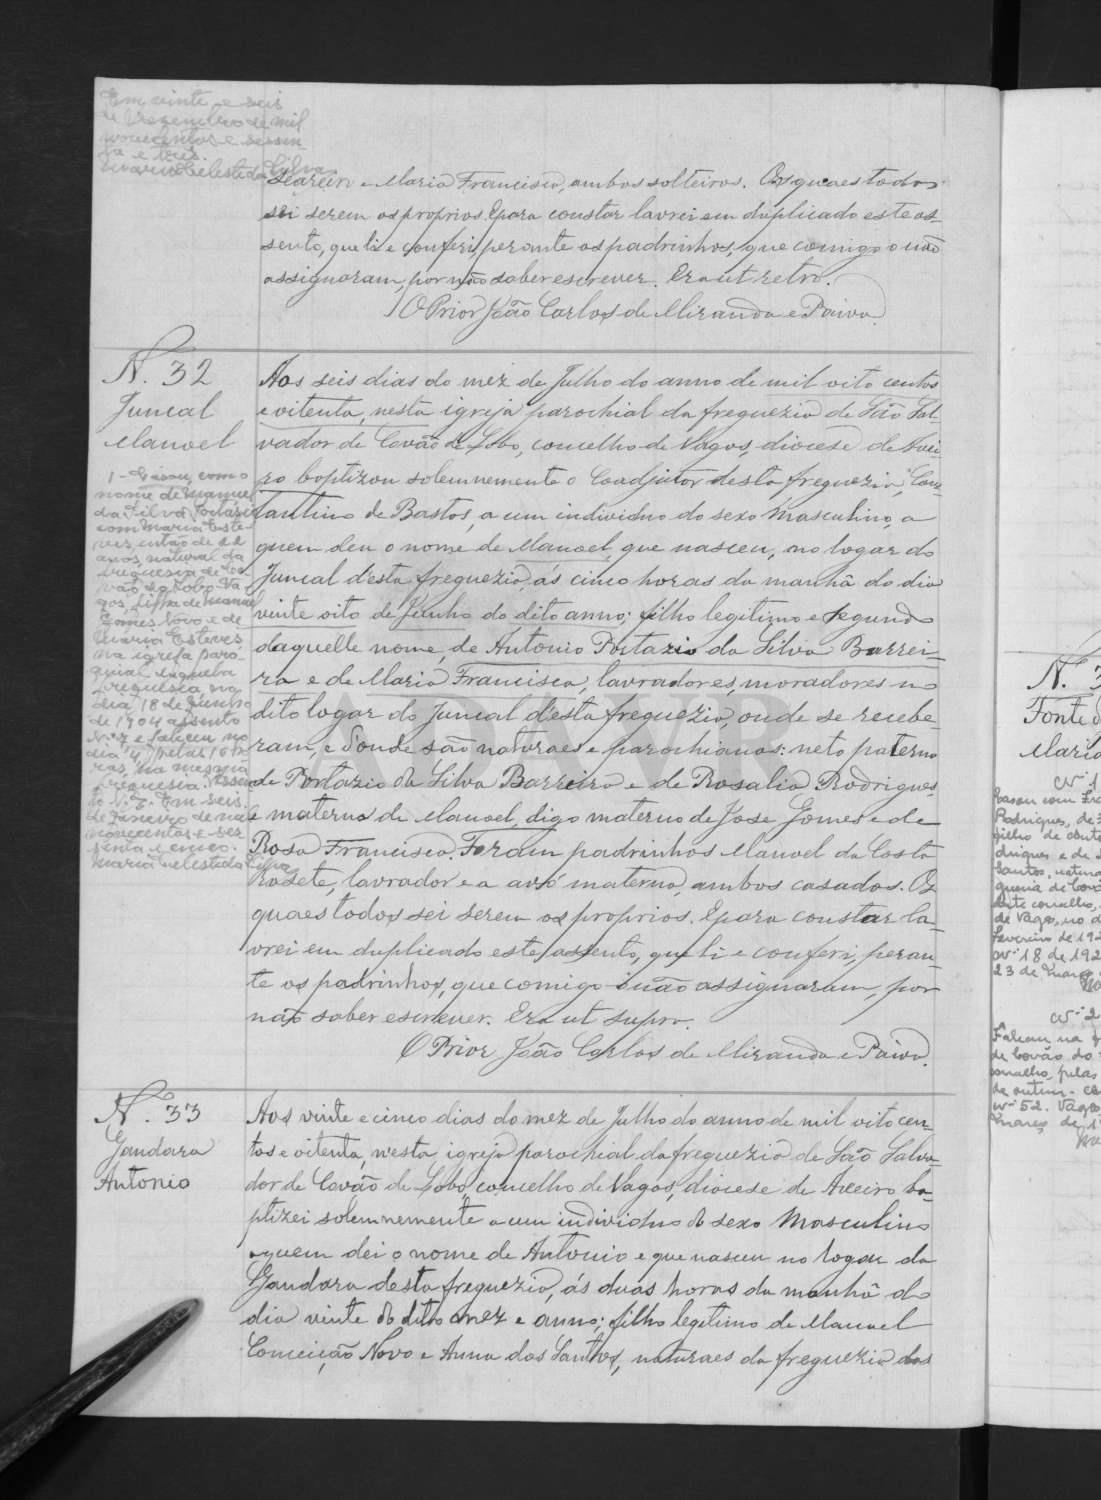 Em vinte e seis
de Dezembro de mil
novecentos e sessen-
ta e tres.
Maria Celeste da Silva
e Maria Francisca, ambos solteiros. Os quaes todos
sei serem os proprios. E para constar lavrei em duplicado este as-
sento, que li e conferi, perante os padrinhos, que comigo o não
assignaram, por não saber escrever. Era ut retro.
O Prior João Carlos de Miranda e Paiva.
N. 32
Juncal
Manoel
Aos seis dias do mez de Julho do anno de mil oito centos
e oitenta, nesta igreja parochial da freguezia de São Sal-
vador de Covão de Lobo, concelho de Vagos, diocese de Avei-
ro baptizou solemnemente o Coadjutor desta freguezia, Cons-
tantino de Bastos, a um individuo do sexo masculino, a
quem deu o nome de Manoel, que nasceu, no logar do
Juncal d'esta freguezia, ás cinco horas da manhã do dia
vinte oito de Junho do dito anno; filho legitimo e segundo
daquelle nome, de Antonio Portazio da Silva Barrei-
ra e de Maria Francisca, lavradores, moradores no
dito logar do Juncal d'esta freguezia, onde se recebe-
ram, e donde são naturaes e parochianos: neto paterno
de Portazio da Silva Barreira e de Rosalia Rodrigues,
e materno de Manoel, digo materno de Jose Gomes e de
Rosa Francisca. Foram padrinhos Manoel da Costa
Rosete, lavrador e a avó materna, ambos casados. Os
quaes todos sei serem os proprios. E para constar la-
vrei em duplicado este assento, que li e conferi, peran-
te os padrinhos, que comigo o não assignaram, por
não saber escrever. Era ut supra.
O Prior João Carlos de Miranda e Paiva.
1 - Casou, com o
nome de Manuel
da Silva Portázio
com Maria Este-
ves, então de 22
anos, natural da
freguesia de Co-
vão do Lobo - Va-
gos, filha de Manuel
Gomes Novo e de
Maria Esteves,
na igreja paro-
quial daquela
freguesia, no
dia 18 de Junho
de 1904 assento
N.º 7 e faleceu no
dia 4, pelas 16 ho-
ras, na mesma
freguesia. Assen-
to N.º 7. Em seis
de Janeiro de mil
novecentos e ses-
senta e cinco.
Maria Celeste da Silva
N. 33
Gandara
Antonio
Aos vinte e cinco dias do mez de Julho do anno de mil oito cen-
tos e oitenta, n'esta igreja parochial da freguezia de São Salva-
dor de Covão de Lobo, concelho de Vagos, diocese de Aveiro ba-
ptizei solemnemente, a um individuo do sexo Masculino
a quem dei o nome de Antonio e que nasceu no logar da
Gandara desta freguezia, ás duas horas da manhã do
dia vinte do dito mez e anno; filho legitimo de Manoel
Conceição Novo e Anna dos Santos, naturaes da freguezia dos
ADAVR
N. 3
Fonte d
Maria
Nº 1
Casou com Fra
Rodrigues, de 3
filho de
drigues e de
Santos, natura
guesia de Covã
deste concelho,
de Vagos, no d
Fevereiro de 192
Nº 18 de 192
23 de Março
Nº 2
Faleceu na f
de Covão do
concelho, pelas
de outu
Nº 52. Vagos
Março de 1